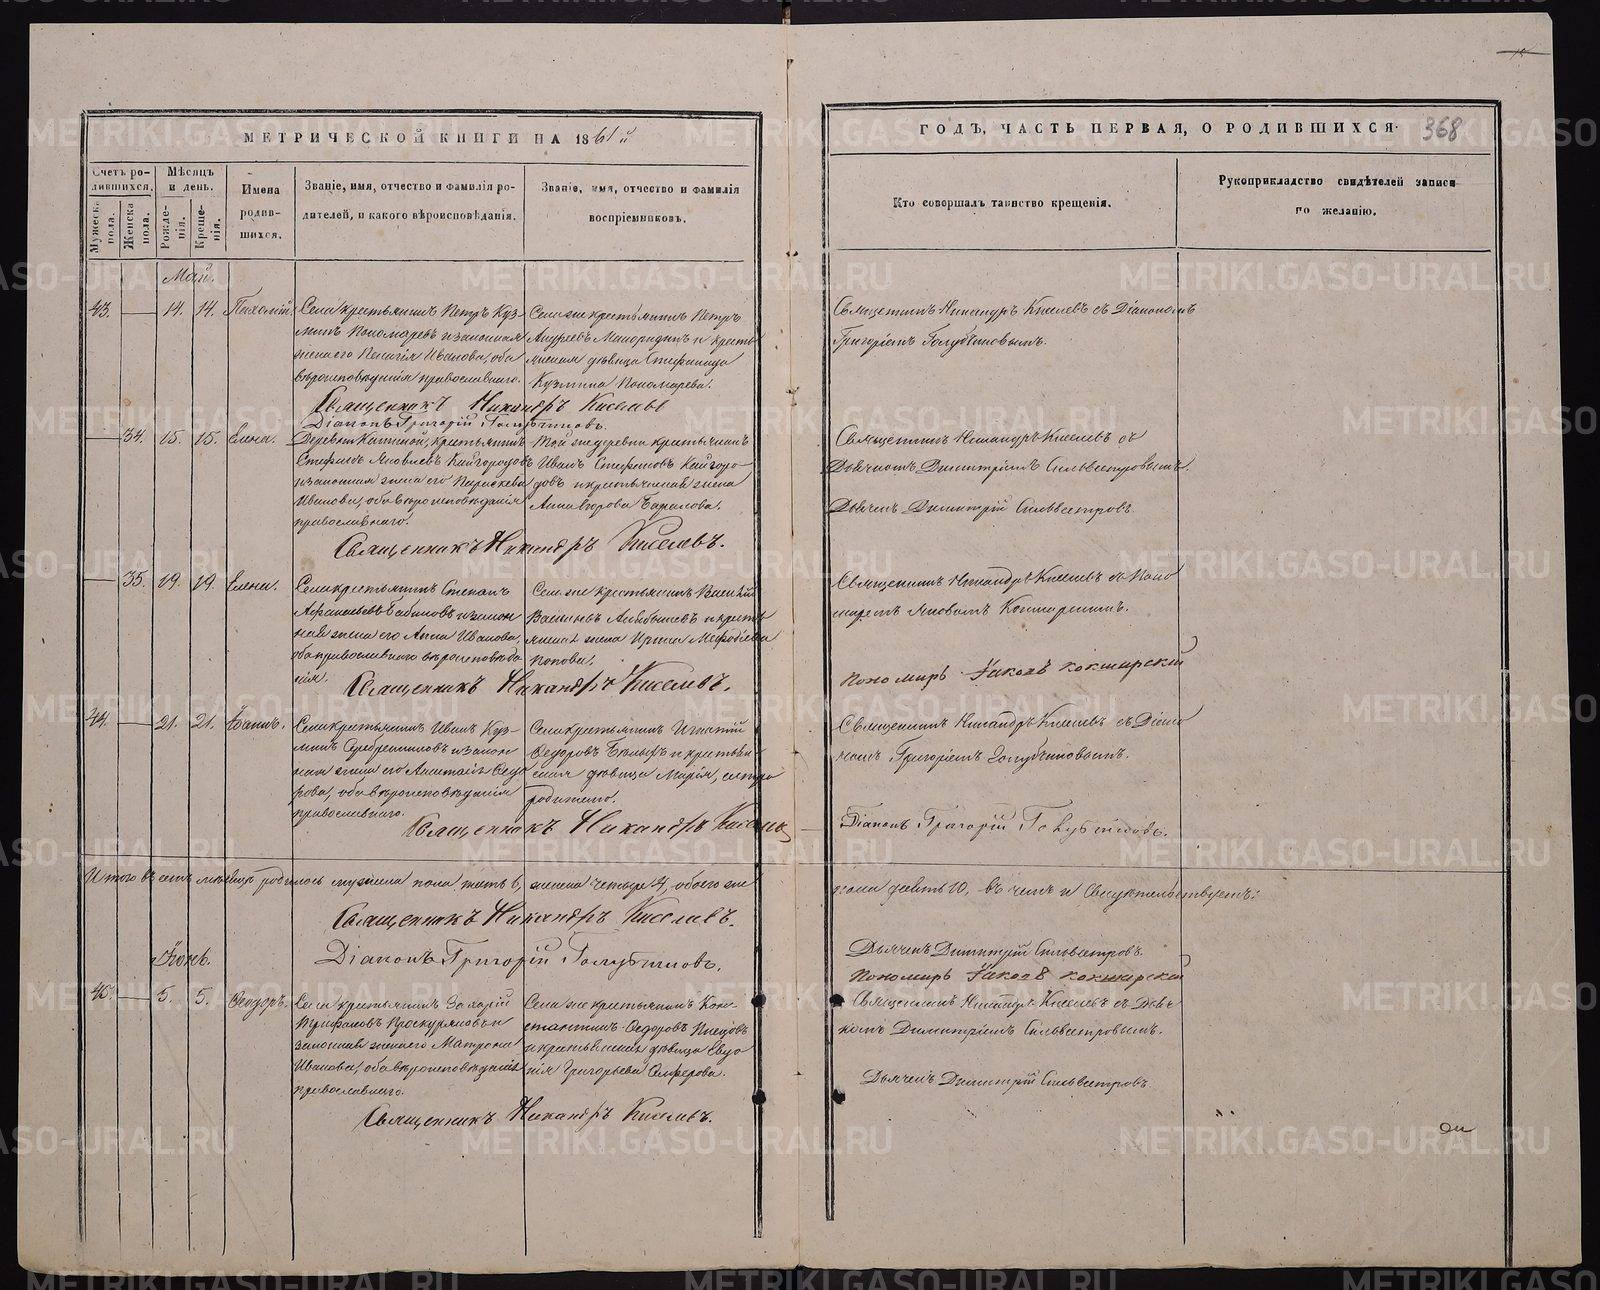 МЕТРИЧЕСКОЙ КНИГИ НА 1861й
ГОДЪ, ЧАСТЬ ПЕРВАЯ, О РОДИВШИХСЯ.
368
Счетъ ро-
дившихся.
Мужеска
пола.
Женска
пола.
Мѣсяцъ
и день.
Рожде-
нія.
Креще-
нія.
Имена
родив-
шихся.
Званіе, имя, отчество и фамилія ро-
дителей, и какого вѣроисповѣданія.
Званіе, имя, отчество и фамилія
воспріемниковъ.
Кто совершалъ таинство крещенія.
Рукоприкладство свидѣтелей записи
по желанію.
Май.
43. 14. 14. Пахомій.
Села крестьянинъ Петръ Куз-
минъ Пономаревъ и законная
жена его Ивановна, оба
вѣроисповѣданія православнаго.
Села же крестьянинъ Петръ
Андреевъ и кресть-
янская дѣвица Стефанида
Кузмина Пономарева.
Священникъ Никандръ Киселевъ съ Діакономъ
Григоріемъ Голубчиковымъ.
Священникъ Никандръ Киселевъ
Діаконъ Григорій Голубчиковъ.
34. 15. 15. Елена.
Деревни крестьянинъ
Стефанъ Яковлевъ Кайгородовъ
и законная жена его Параскева
Иванова, оба вѣроисповѣданія
православнаго.
Той же деревни крестьянинъ
Иванъ Стефановъ Кайгоро-
довъ и крестьянская жена
Анна Егорова
Священникъ Никандръ Киселевъ съ
Дьячкомъ Димитріемъ Сильвестровымъ.
Дьячекъ Димитрій Сильвестровъ
Священникъ Никандръ Киселевъ.
35. 19. 19. Елена.
Села крестьянинъ Степанъ
Афанасьевъ Бабиновъ и закон-
ная жена его Анна Иванова,
оба православнаго вѣроисповѣда-
нія.
Села же крестьянинъ Василій
и кресть-
янская жена Ирина Мефодіева
Попова.
Священникъ Никандръ Киселевъ съ Поно-
маремъ Яковомъ Кокшарскимъ.
Пономарь Іаковъ Кокшарскій
Священникъ Никандръ Киселевъ.
44. 21. 21. Іоаннъ.
Села крестьянинъ Иванъ Куз-
минъ Серебрениковъ и закон-
ная жена его Федо-
рова, оба вѣроисповѣданія
православнаго.
Села крестьянинъ Игнатій
Федоровъ и крестьян-
ская дѣвица Марія, сестра
родителю.
Священникъ Никандръ Киселевъ съ Діако-
номъ Григоріемъ Голубчиковымъ.
Діаконъ Григорій Голубчиковъ.
Священникъ Никандръ Киселевъ
Итого въ семъ мѣсяцѣ родилось мужеска пола шесть 6, женска четыре 4, обоего же
пола десять 10, въ чемъ и свидѣтельствуетъ:
Священникъ Никандръ Киселевъ.
Діаконъ Григорій Голубчиковъ.
Дьячекъ Димитрій Сильвестровъ.
Пономарь Іаковъ Кокшарскій
Іюнь.
45. 5. 5. Феодоръ.
Села крестьянинъ Захарій
Трифановъ Проскуряковъ и
законная жена его Матрона
Иванова, оба вѣроисповѣданія
православнаго.
Села же крестьянинъ Кон-
стантинъ Федоровъ
и крестьянская дѣвица Евдо-
кія Григорьева
Священникъ Никандръ Киселевъ съ Дьяч-
комъ Димитріемъ Сильвестровымъ.
Дьячекъ Димитрій Сильвестровъ
Священникъ Никандръ Киселевъ.
METRIKI.GASO-URAL.RU